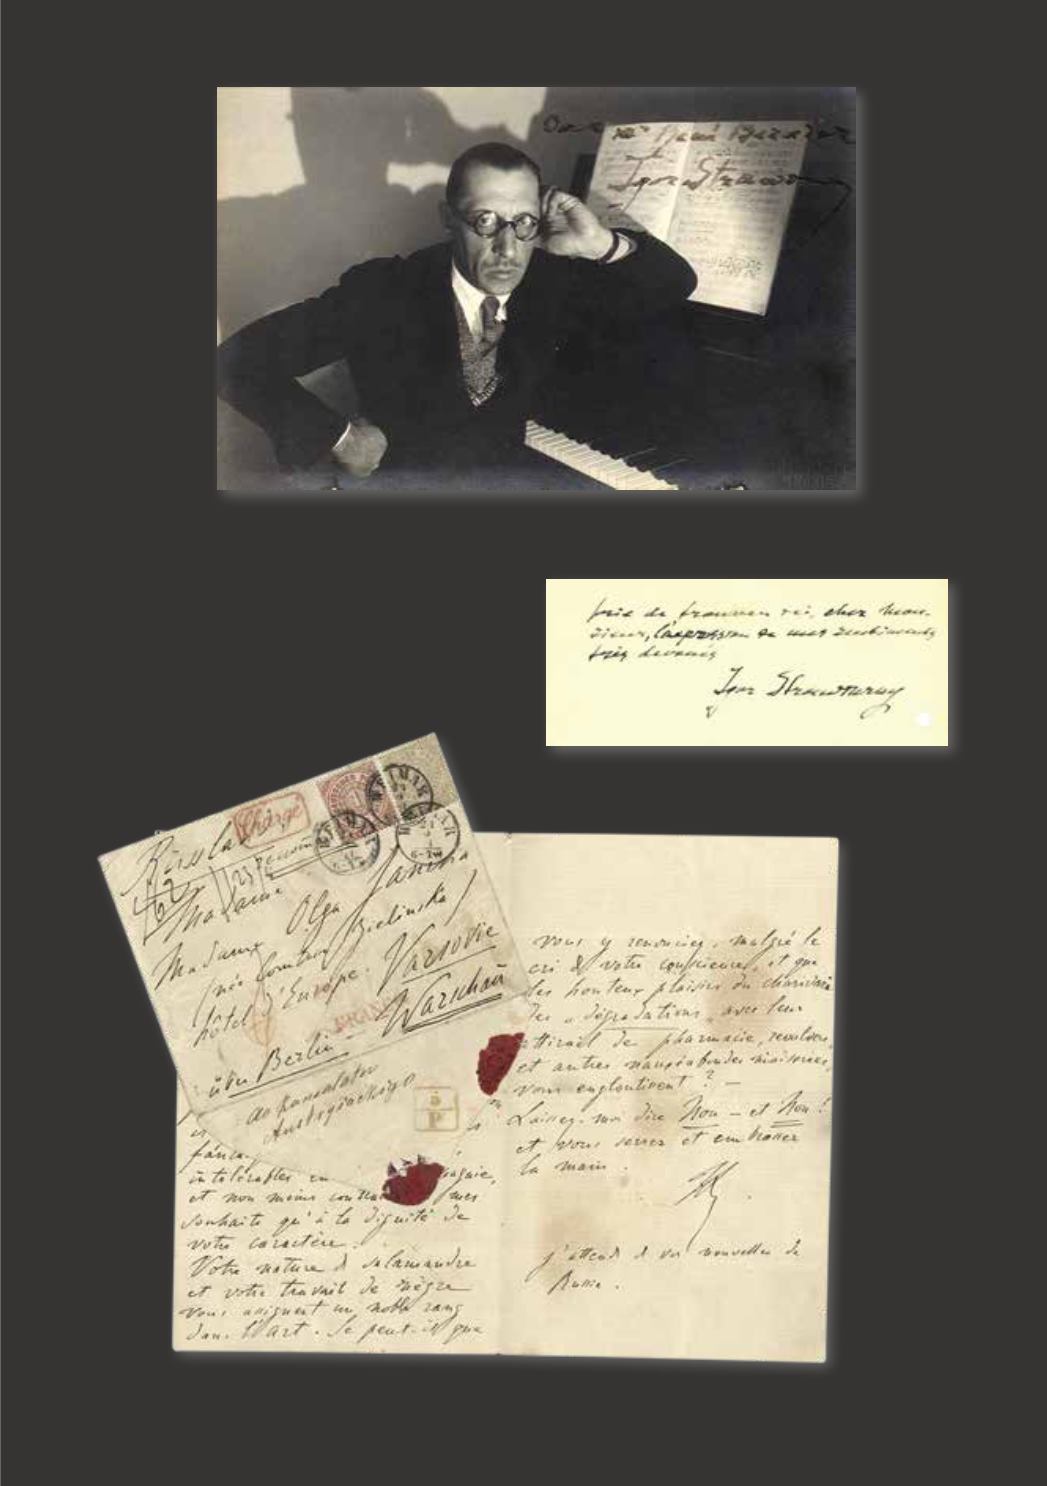 Igor Strawinsky
cher Mon-
sieur, l'expression de mes sentiments
très dévoués
Igor Strawinsky
Chargé
WEIMAR
WEIMAR
6-7N
Madame
Olga Janina
Madame
(née Comtesse Zielinska)
hôtel d'Europe. Varsovie
Warschau
FRANCO
über Berlin –
do Konsulatu
Austryackiego
intolérables en
et non moins
mes
souhaits qu'à la dignité de
votre caractère.
Votre nature de salamandre
et votre travail de nègre
vous assignent un noble rang
dans l'art. Se peut-il que
vous y renonciez, malgré le
cri de votre conscience, et que
les honteux plaisirs du charivari
des „dégradations„ avec leur
attirail de pharmacie, revolvers,
et autres nauséabondes niaiseries,
vous engloutissent ? –
Laissez-moi dire Non – et Non !
et vous serrer et embrasser
la main.
j'attends de vos nouvelles de
Russie.